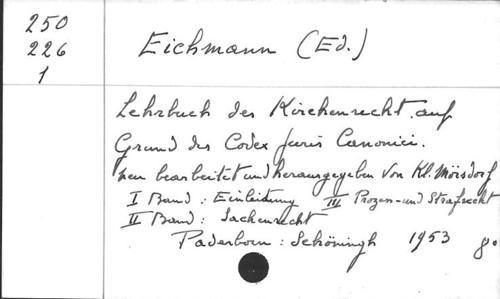 250
226
1
Eichmann (Ed.)
Lehrbuch des Kirchenrecht. auf
Grund des Codex Juris Canonici.
neu bearbeitet und herausgegeben von Kl. Mörsdorf
I Band : Einleitung III Prozess- und Strafrecht
II Band : Sachenrecht
Paderborn : Schöningh 1953 8°